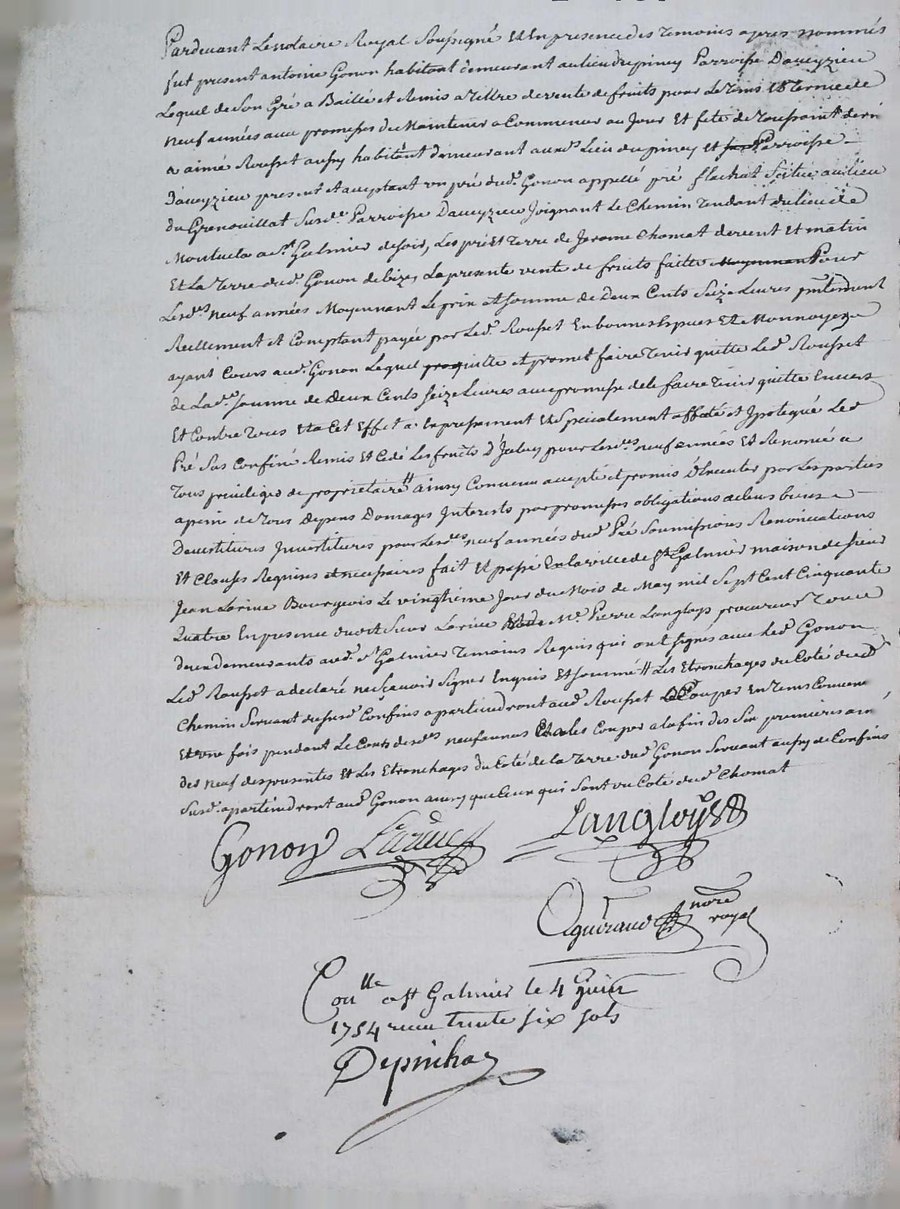 Pardevant Le notaire Royal Soussigné Et En presence des Temoins apres nommés
fut present antoine Gonon habitant demeurant au lieu du piney Parroisse Daveyzieu
Lequel de Son Gré a Baillé et Remis a Tittre de vente de fruits pour Le Tems Et Terme de
neuf années avec promesses de Maintenir a Commencer au Jour Et fete de Toussaint dern
a aimé Rousset aussy habitant demeurant aud. Lieu du piney et Parroisse
Daveyzieu present et acceptant un pré dud. Gonon appellé pré flachat Scitué au lieu
du Grenouillat Susde. Parroisse Daveyzieu Joignant Le Chemin Tendant du lieu de
Montuclas a St. Galmier de soir, Les pré et Terre de Jerome Chomat de vent et matin
Et La Terre dud. Gonon de bize, La presente vente de fruits faitte Moyennant Pour
Lesds. neuf années Moyennant Le prix et Somme de Deux Cents Seize Livres pntement
Reellement et Comptant payée par Led. Rousset En bonnes Espues Et de Monnoye
ayant Cours aud. Gonon Lequel quitte et promet faire Tenir quitte Led. Rousset
de Lade. Somme de Deux Cents Seize Livres avec promesse de le faire Tenir quitte Envers
Et Contre Tous Et a Cet Effet a Expressement Et Specialement affaté et Ipotequé Led.
Pré Sus Confiné Remis Et Cedé Les fruits D'Iceluy pour Lesds. neuf années Et Renoncé a
Tous privileges de proprietaire # ainsy Convenu accepté et promis D'Executer par Les parties
a peine de Tous Depens Domages Interests par promesses obligations de leurs biens
Devestitures Investitures pour Lesds. neuf années dud. Pré Soumissions Renonciations
Et Clauses Requises et necessaires fait Et passé En la ville de St. Galmier maison de Sieur
Jean Larive Bourgeois Le vingtième Jour du Mois de May mil Sept Cent Cinquante
Quatre En presence dudit Sieur Larive Et de Me. Pierre Langloys procureur Tous
deux demeurants aud. St. Galmier Temoins Requis qui ont signés avec led. Gonon
Led. Rousset a declaré ne Scavoir Signer Enquis Et Sommé # Les Etronchages du Coté dud.
Chemin Servant de Confins apartiendront aud. Rousset Couper En Tems Convenu
Et une fois pendant Le Cours desds. neuf années Les Couper a la fin des Six premieres an
des neuf des presentes Et Les Etronchages du Coté de la Terre dud. Gonon Servant aussy de Confins
Susd. apartiendront aud. Gonon ainsy que Ceux qui Sont du Coté dud. Chomat
Gonon Larive Langloys
Aguiraud nore royal
Conlle a St Galmier le 4 Juin
1754 recu trente six sols
Depinhac